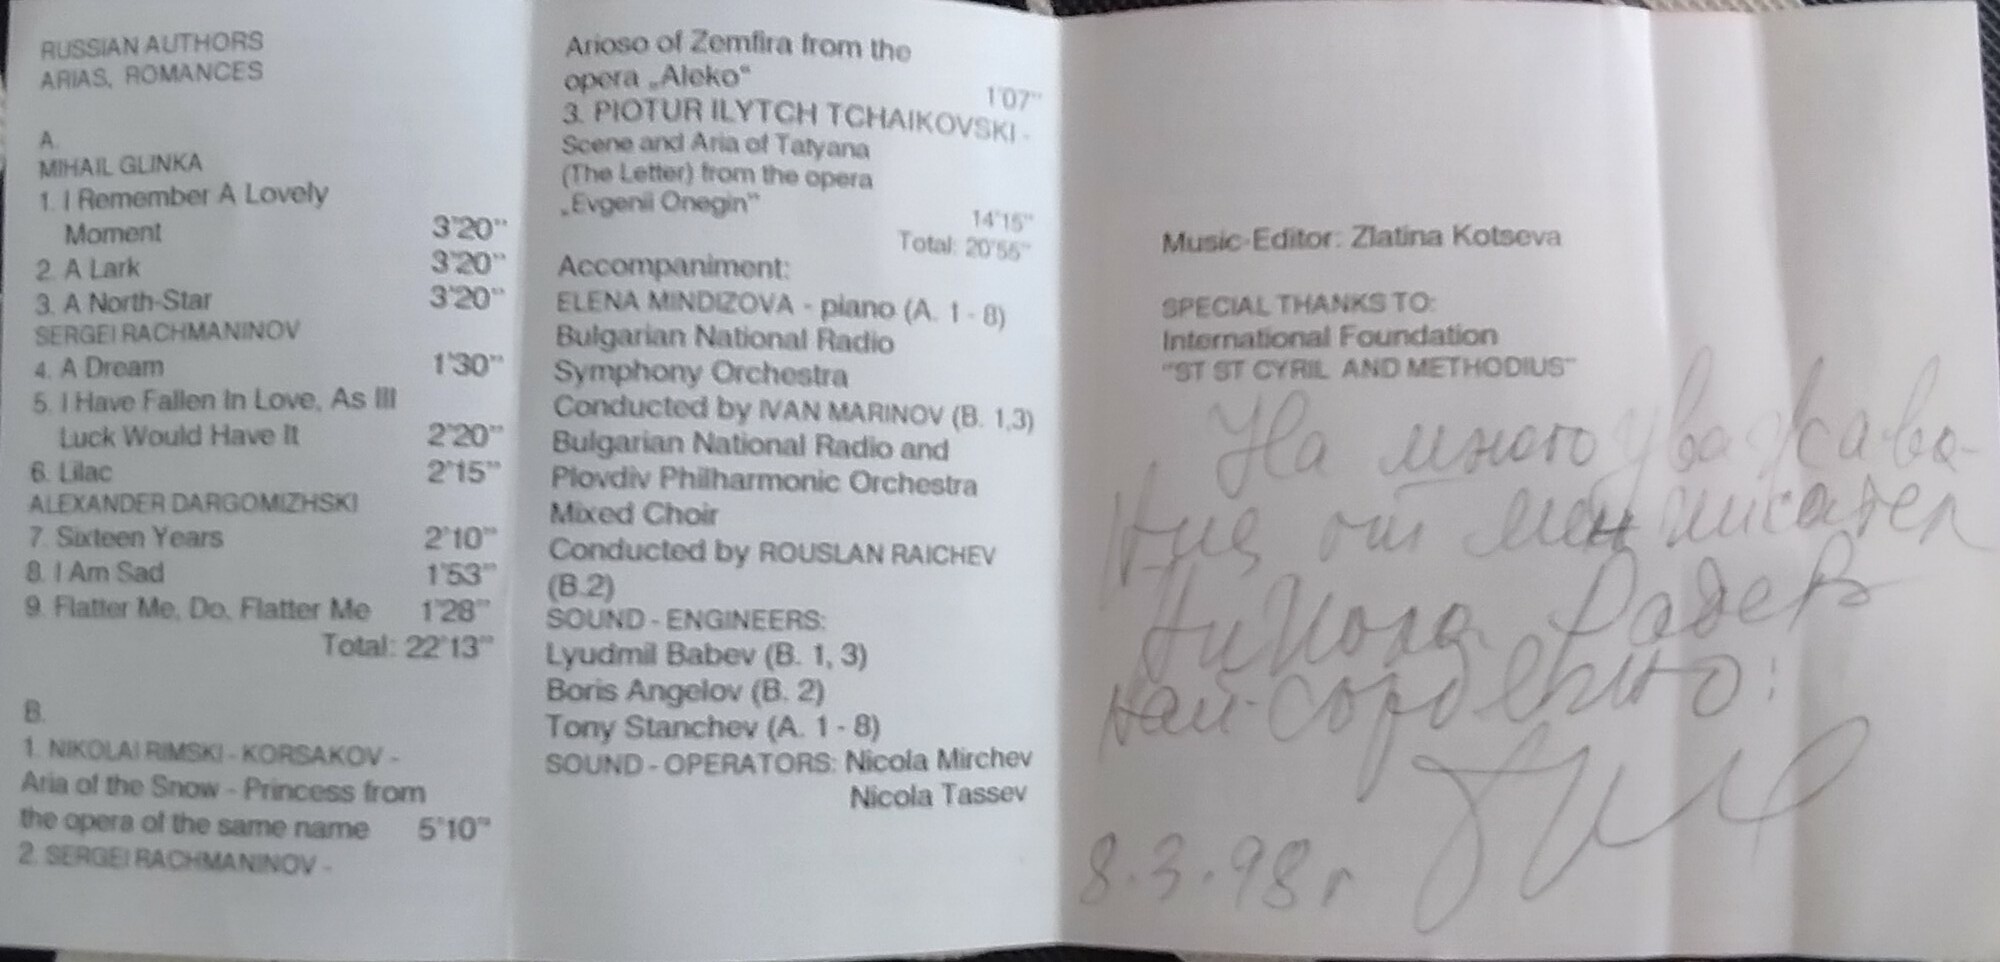 RUSSIAN AUTHORS
ARIAS, ROMANCES
A.
MIHAIL GLINKA
1. I Remember A Lovely
Moment 3'20"
2. A Lark 3'20"
3. A North-Star 3'20"
SERGEI RACHMANINOV
4. A Dream 1'30"
5. I Have Fallen In Love, As Ill
Luck Would Have It 2'20"
6. Lilac 2'15"
ALEXANDER DARGOMIZHSKI
7. Sixteen Years 2'10"
8. I Am Sad 1'53"
9. Flatter Me, Do, Flatter Me 1'28"
Total: 22'13"
B.
1. NIKOLAI RIMSKI - KORSAKOV -
Aria of the Snow - Princess from
the opera of the same name 5'10"
2. SERGEI RACHMANINOV -
Arioso of Zemfira from the
opera „Aleko“
1'07"
3. PIOTUR ILYTCH TCHAIKOVSKI -
Scene and Aria of Tatyana
(The Letter) from the opera
„Evgenii Onegin“
14'15"
Total: 20'55"
Accompaniment:
ELENA MINDIZOVA - piano (A. 1 - 8)
Bulgarian National Radio
Symphony Orchestra
Conducted by IVAN MARINOV (B. 1,3)
Bulgarian National Radio and
Plovdiv Philharmonic Orchestra
Mixed Choir
Conducted by ROUSLAN RAICHEV
(B.2)
SOUND - ENGINEERS:
Lyudmil Babev (B. 1, 3)
Boris Angelov (B. 2)
Tony Stanchev (A. 1 - 8)
SOUND - OPERATORS: Nicola Mirchev
Nicola Tassev
Music-Editor: Zlatina Kotseva
SPECIAL THANKS TO:
International Foundation
"ST ST CYRIL AND METHODIUS"
На много уважава-
ния от мен писател
Никола Радев
най-сърдечно:
8.3.98 г